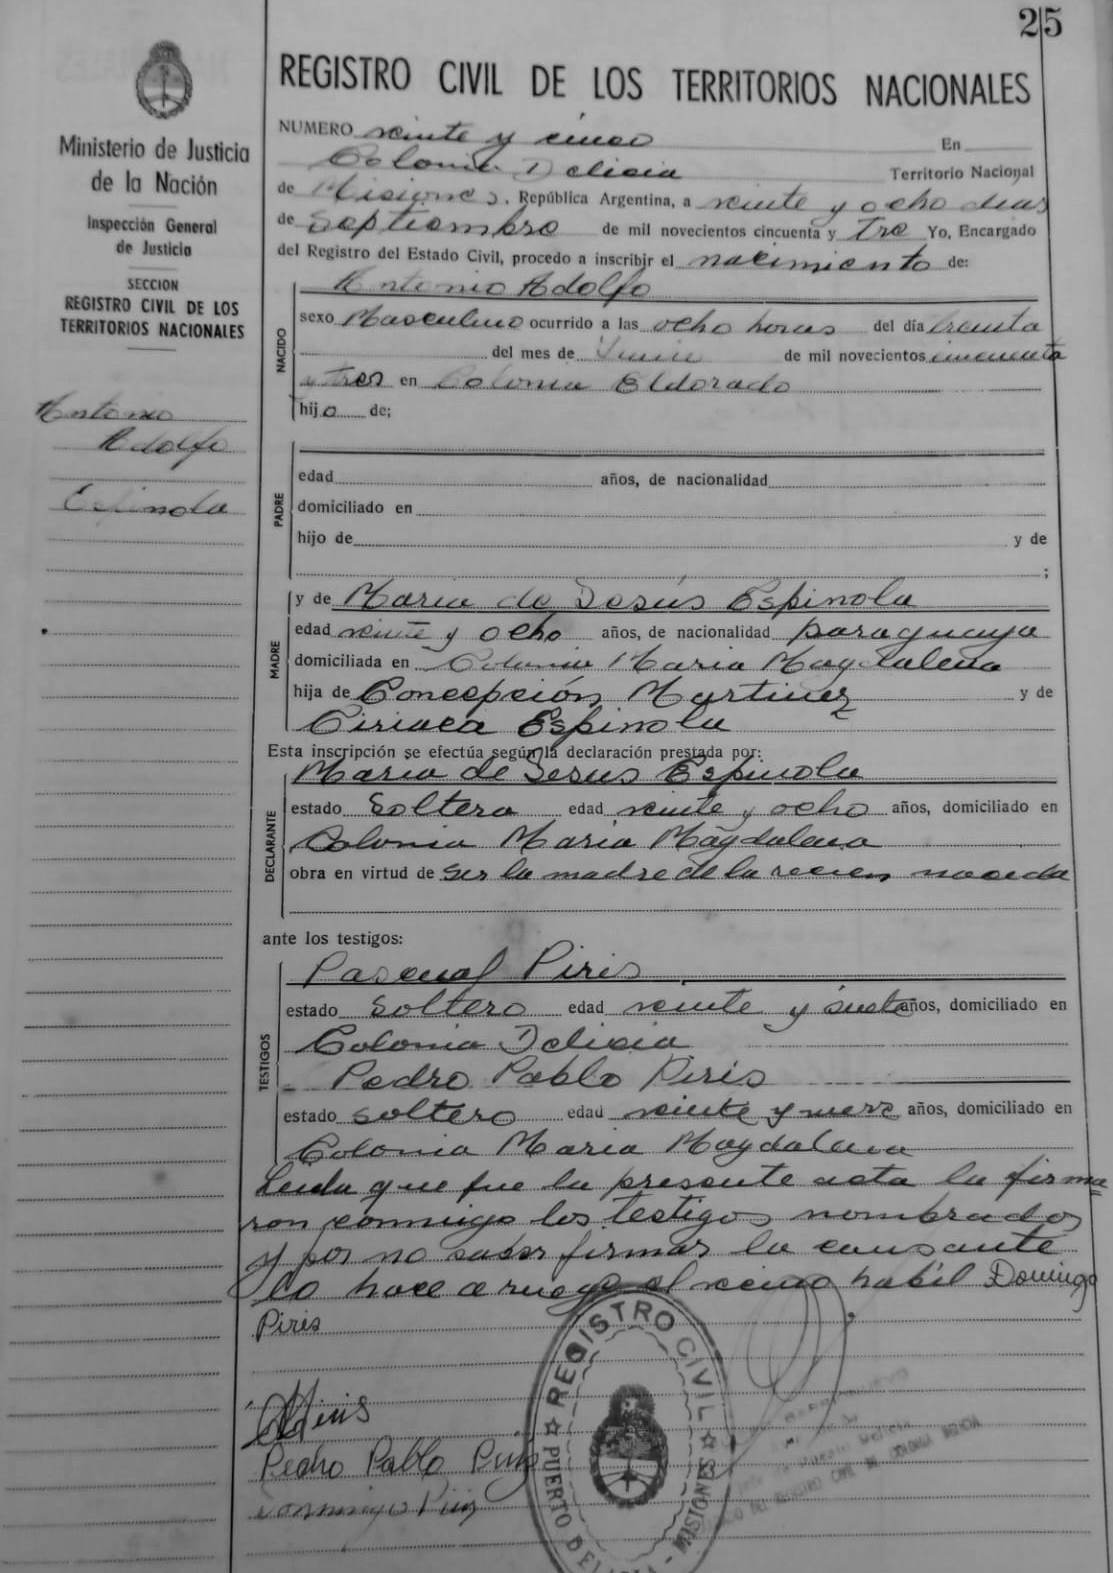 25
REGISTRO CIVIL DE LOS TERRITORIOS NACIONALES
Ministerio de Justicia
de la Nación
Inspección General
de Justicia
SECCION
REGISTRO CIVIL DE LOS
TERRITORIOS NACIONALES
Antonio
Adolfo
Espinola
NUMERO veinte y cinco En
Colonia Delicia Territorio Nacional
de Misiones. República Argentina, a veinte y ocho dias
de Septiembre de mil novecientos cincuenta y Tre Yo, Encargado
del Registro del Estado Civil, procedo a inscribir el nacimiento de:
Antonio Adolfo
NACIDO
sexo Masculino ocurrido a las ocho horas del día treinta
del mes de Junio de mil novecientos cincuenta
y tres en Colonia Eldorado
hijo de;
PADRE
edad años, de nacionalidad
domiciliado en
hijo de y de
;
MADRE
y de Maria de Jesús Espinola
edad veinte y ocho años, de nacionalidad paraguaya
domiciliada en Colonia Maria Magdalena
hija de Concepción Martinez y de
Ciriaca Espinola
Esta inscripción se efectúa según la declaración prestada por:
DECLARANTE
Maria de Jesus Espinola
estado Soltera edad veinte y ocho años, domiciliado en
Colonia Maria Magdalena
obra en virtud de ser la madre de la recien nacida
ante los testigos:
TESTIGOS
Pascual Piris
estado Soltero edad veinte y siete años, domiciliado en
Colonia Delicia
Pedro Pablo Piris
estado soltero edad veinte y años, domiciliado en
Colonia Maria Magdalena
Leida que fue la presente acta la firma=
ron conmigo los testigos nombrados
y por no saber firmar la causante
lo hace a ruego el vecino habil Domingo
Piris
Piris
Pedro Pablo Piris
Domingo Piris
REGISTRO CIVIL
PUERTO DELICIA - MISIONES